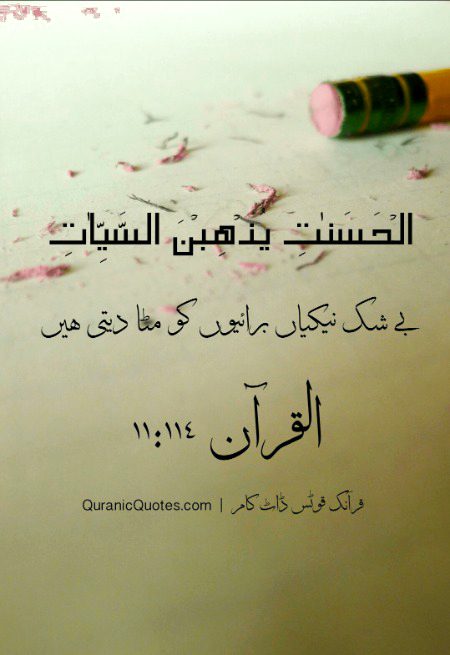 الْحَسَنٰتِ يَذْهِبْنَ السَّيِّاٰتِ
بے شک نیکیاں برائیوں کو مٹا دیتی ھیں
القرآن ١١:١١٤
QuranicQuotes.com | قرآنک قوٹس ڈاٹ کام